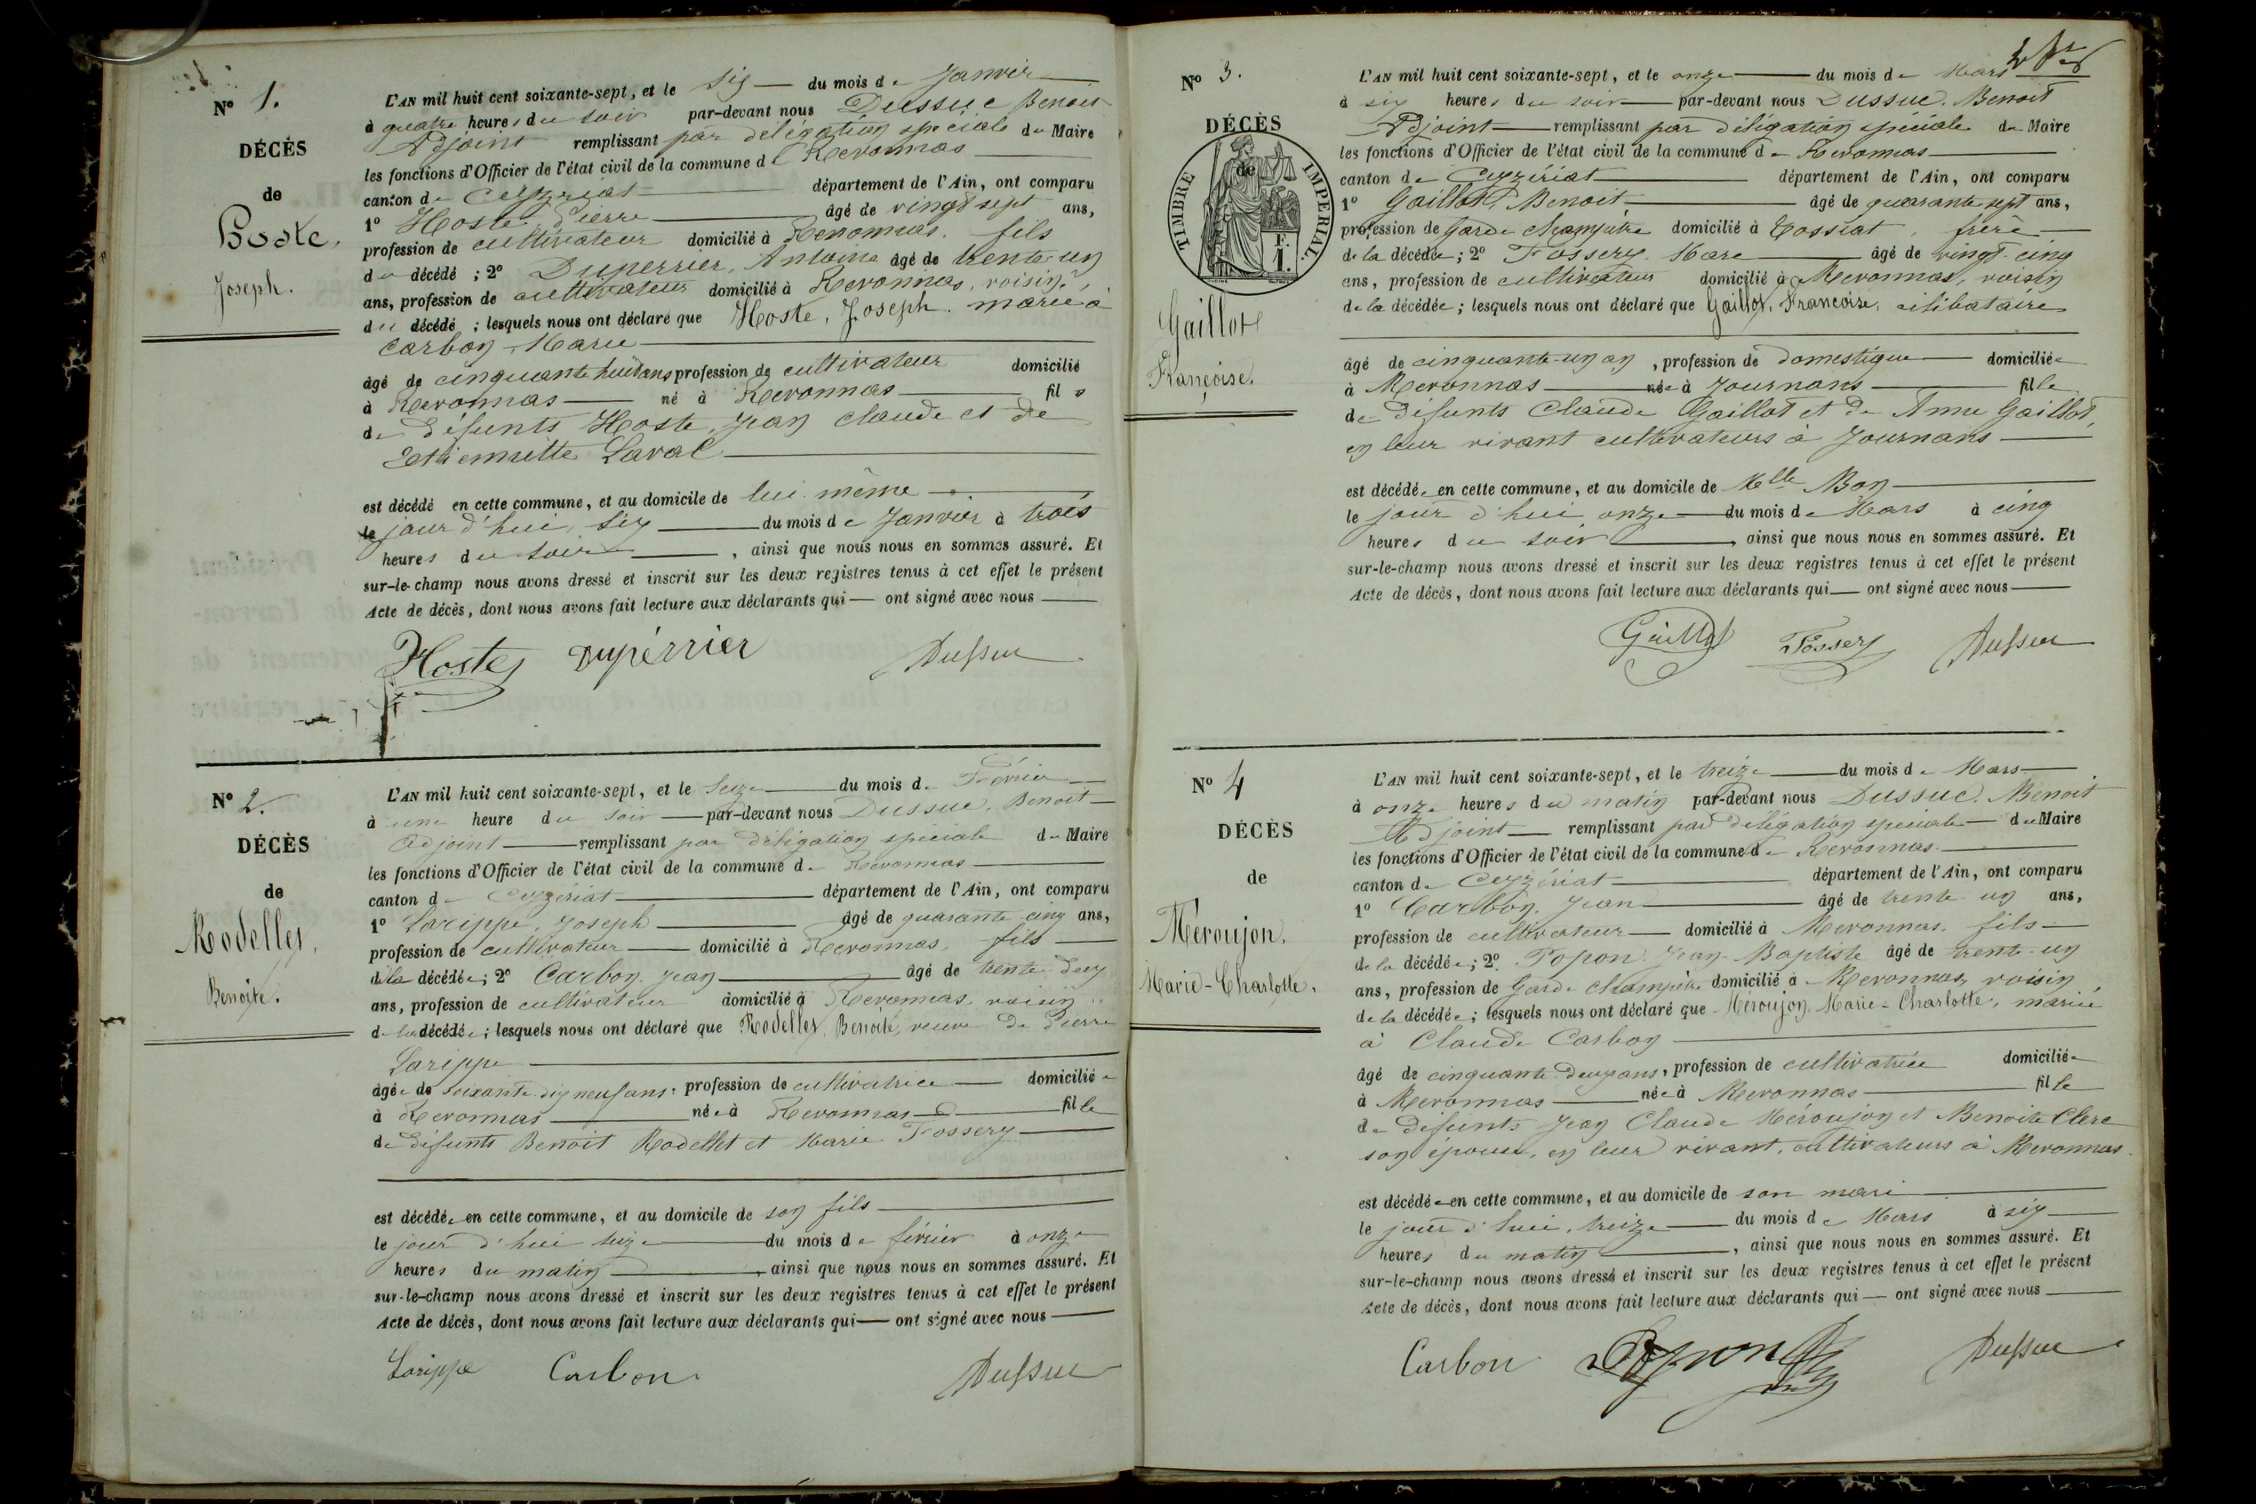 N° 1.
DÉCÈS
de
Hoste,
Joseph.
L'AN mil huit cent soixante-sept, et le six du mois de Janvier
à quatre heures du soir par-devant nous Dussuc Benoit
Adjoint remplissant par délégation spéciale du Maire
les fonctions d'Officier de l'état civil de la commune de Revonnas
canton de Ceyzériat département de l'Ain, ont comparu
1° Hoste, Pierre âgé de vingt sept ans,
profession de cultivateur domicilié à Revonnas. fils
du décédé ; 2° Duperrier, Antoine âgé de trente un
ans, profession de cultivateur domicilié à Revonnas, voisin
du décédé ; lesquels nous ont déclaré que Hoste, Joseph. marié à
Carbon, Marie
âgé de cinquante huit ans profession de cultivateur domicilié
à Revonnas né à Revonnas fils
de défunts Hoste, Jean Claude et de
Etiennette Laval
est décédé en cette commune, et au domicile de lui même
le jour d'hui, six du mois de Janvier à trois
heures du soir , ainsi que nous nous en sommes assuré. Et
sur-le-champ nous avons dressé et inscrit sur les deux registres tenus à cet effet le présent
Acte de décès, dont nous avons fait lecture aux déclarants qui ont signé avec nous
Hoste Dupérrier Dussuc
N° 2.
DÉCÈS
de
Rodellet,
Benoite.
L'AN mil huit cent soixante-sept, et le seize du mois de Février
à une heure du soir par-devant nous Dussuc, Benoit
adjoint remplissant par délégation spéciale du Maire
les fonctions d'Officier de l'état civil de la commune de Revonnas
canton de Ceyzériat département de l'Ain, ont comparu
1° Larippe, Joseph âgé de quarante cinq ans,
profession de cultivateur domicilié à Revonnas, fils
de la décédée ; 2° Carbon, Jean âgé de trente deux
ans, profession de cultivateur domicilié à Revonnas, voisin
de la décédée ; lesquels nous ont déclaré que Rodellet, Benoite, veuve de Pierre
Larippe
âgée de soixante dix neuf ans, profession de cultivatrice domiciliée
à Revonnas née à Revonnas fille
de défunts Benoit Rodellet et Marie Fossery
est décédée en cette commune, et au domicile de son fils
le jour d'hui seize du mois de février à onze
heures du matin , ainsi que nous nous en sommes assuré. Et
sur-le-champ nous avons dressé et inscrit sur les deux registres tenus à cet effet le présent
Acte de décès, dont nous avons fait lecture aux déclarants qui ont signé avec nous
Larippe Carbon Dussuc
N° 3.
DÉCÈS
de
TIMBRE IMPÉRIAL.
Gaillot
Françoise.
L'AN mil huit cent soixante-sept, et le onze du mois de Mars
à six heures du soir par-devant nous Dussuc. Benoit
Adjoint remplissant par délégation spéciale du Maire
les fonctions d'Officier de l'état civil de la commune de Revonnas
canton de Ceyzériat département de l'Ain, ont comparu
1° Gaillot, Benoit âgé de quarante sept ans,
profession de garde champêtre domicilié à Tossiat, frère
de la décédée ; 2° Fossery. Marc âgé de vingt-cinq
ans, profession de cultivateur domicilié à Revonnas, voisin
de la décédée ; lesquels nous ont déclaré que Gaillot, Françoise, célibataire
âgé de cinquante-un an, profession de domestique domiciliée
à Revonnas née à Journans fille
de défunts Claude Gaillot et de Anne Gaillot,
en leur vivant cultivateurs à Journans
est décédée en cette commune, et au domicile de Melle Bon
le jour d'hui onze du mois de Mars à cinq
heures du soir , ainsi que nous nous en sommes assuré. Et
sur-le-champ nous avons dressé et inscrit sur les deux registres tenus à cet effet le présent
Acte de décès, dont nous avons fait lecture aux déclarants qui ont signé avec nous
Gaillot Fossery Dussuc
N° 4
DÉCÈS
de
Meroujon.
Marie-Charlotte.
L'AN mil huit cent soixante-sept, et le treize du mois de Mars
à onze heures du matin par-devant nous Dussuc. Benoit
Adjoint remplissant par délégation spéciale du Maire
les fonctions d'Officier de l'état civil de la commune de Revonnas.
canton de Ceyzériat département de l'Ain, ont comparu
1° Carbon, Jean âgé de trente un ans,
profession de cultivateur domicilié à Revonnas. fils
de la décédée ; 2° Popon. Jean-Baptiste âgé de trente-un
ans, profession de garde champêtre domicilié à Revonnas, voisin
de la décédée ; lesquels nous ont déclaré que Meroujon, Marie-Charlotte, mariée
à Claude Carbon
âgé de cinquante deux ans, profession de cultivatrice domiciliée
à Revonnas née à Revonnas fille
de défunts Jean Claude Méroujon et Benoite Clerc
son épouse, en leur vivant, cultivateurs à Revonnas.
est décédée en cette commune, et au domicile de son mari
le jour d'hui, treize du mois de Mars à six
heures du matin , ainsi que nous nous en sommes assuré. Et
sur-le-champ nous avons dressé et inscrit sur les deux registres tenus à cet effet le présent
Acte de décès, dont nous avons fait lecture aux déclarants qui ont signé avec nous
Carbon Popon Dussuc